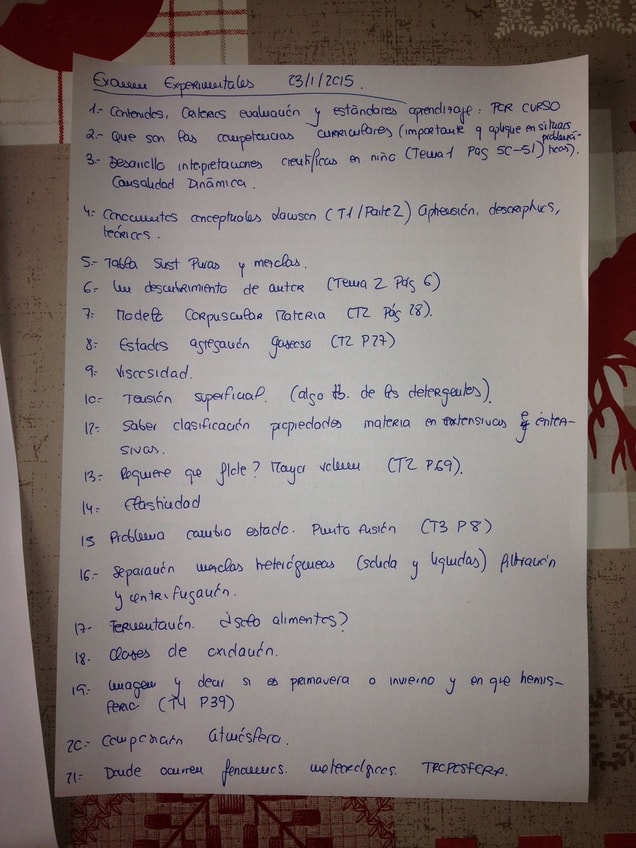 Examen Experimentales 23/1/2015.
1.- Contenidos, Criterios evaluación y estándares aprendizaje: POR CURSO
2.- Que son las competencias curriculares (importante q aplique en situacs problemáticas).
3.- Desarrollo interpretaciones científicas en niño (Tema 1 Pág 50-51)
Causalidad Dinámica.
4.- Conocimientos conceptuales Lawson (T1/Parte 2) Aprehensión, descriptivos,
teóricos.
5.- Tabla Sust Puras y mezclas.
6.- Un descubrimiento de autor (Tema 2 Pág 6)
7.- Modelo Corpuscular Materia (T2 Pág 28).
8.- Estados agregación gaseoso (T2 P27)
9.- Viscosidad.
10.- Tensión superficial. (algo tb. de los detergentes).
12.- Saber clasificación propiedades materia en extensivas e inten-
sivas.
13.- Requiere que flote? Mayor volumen (T2 P.69).
14.- Elasticidad
15 Problema cambio estado. Punto fusión (T3 P8)
16.- Separación mezclas heterógeneas (solida y liquidas) filtración
y centrifugación.
17.- Fermentación. ¿Solo alimentos?
18.- Clases de oxidación.
19.- Imagen y decir si es primavera o invierno y en que hemis-
ferio (T4 P39)
20.- Composición atmósfera.
21.- Donde ocurren fenomenos meteorologicos. TROPOSFERA.